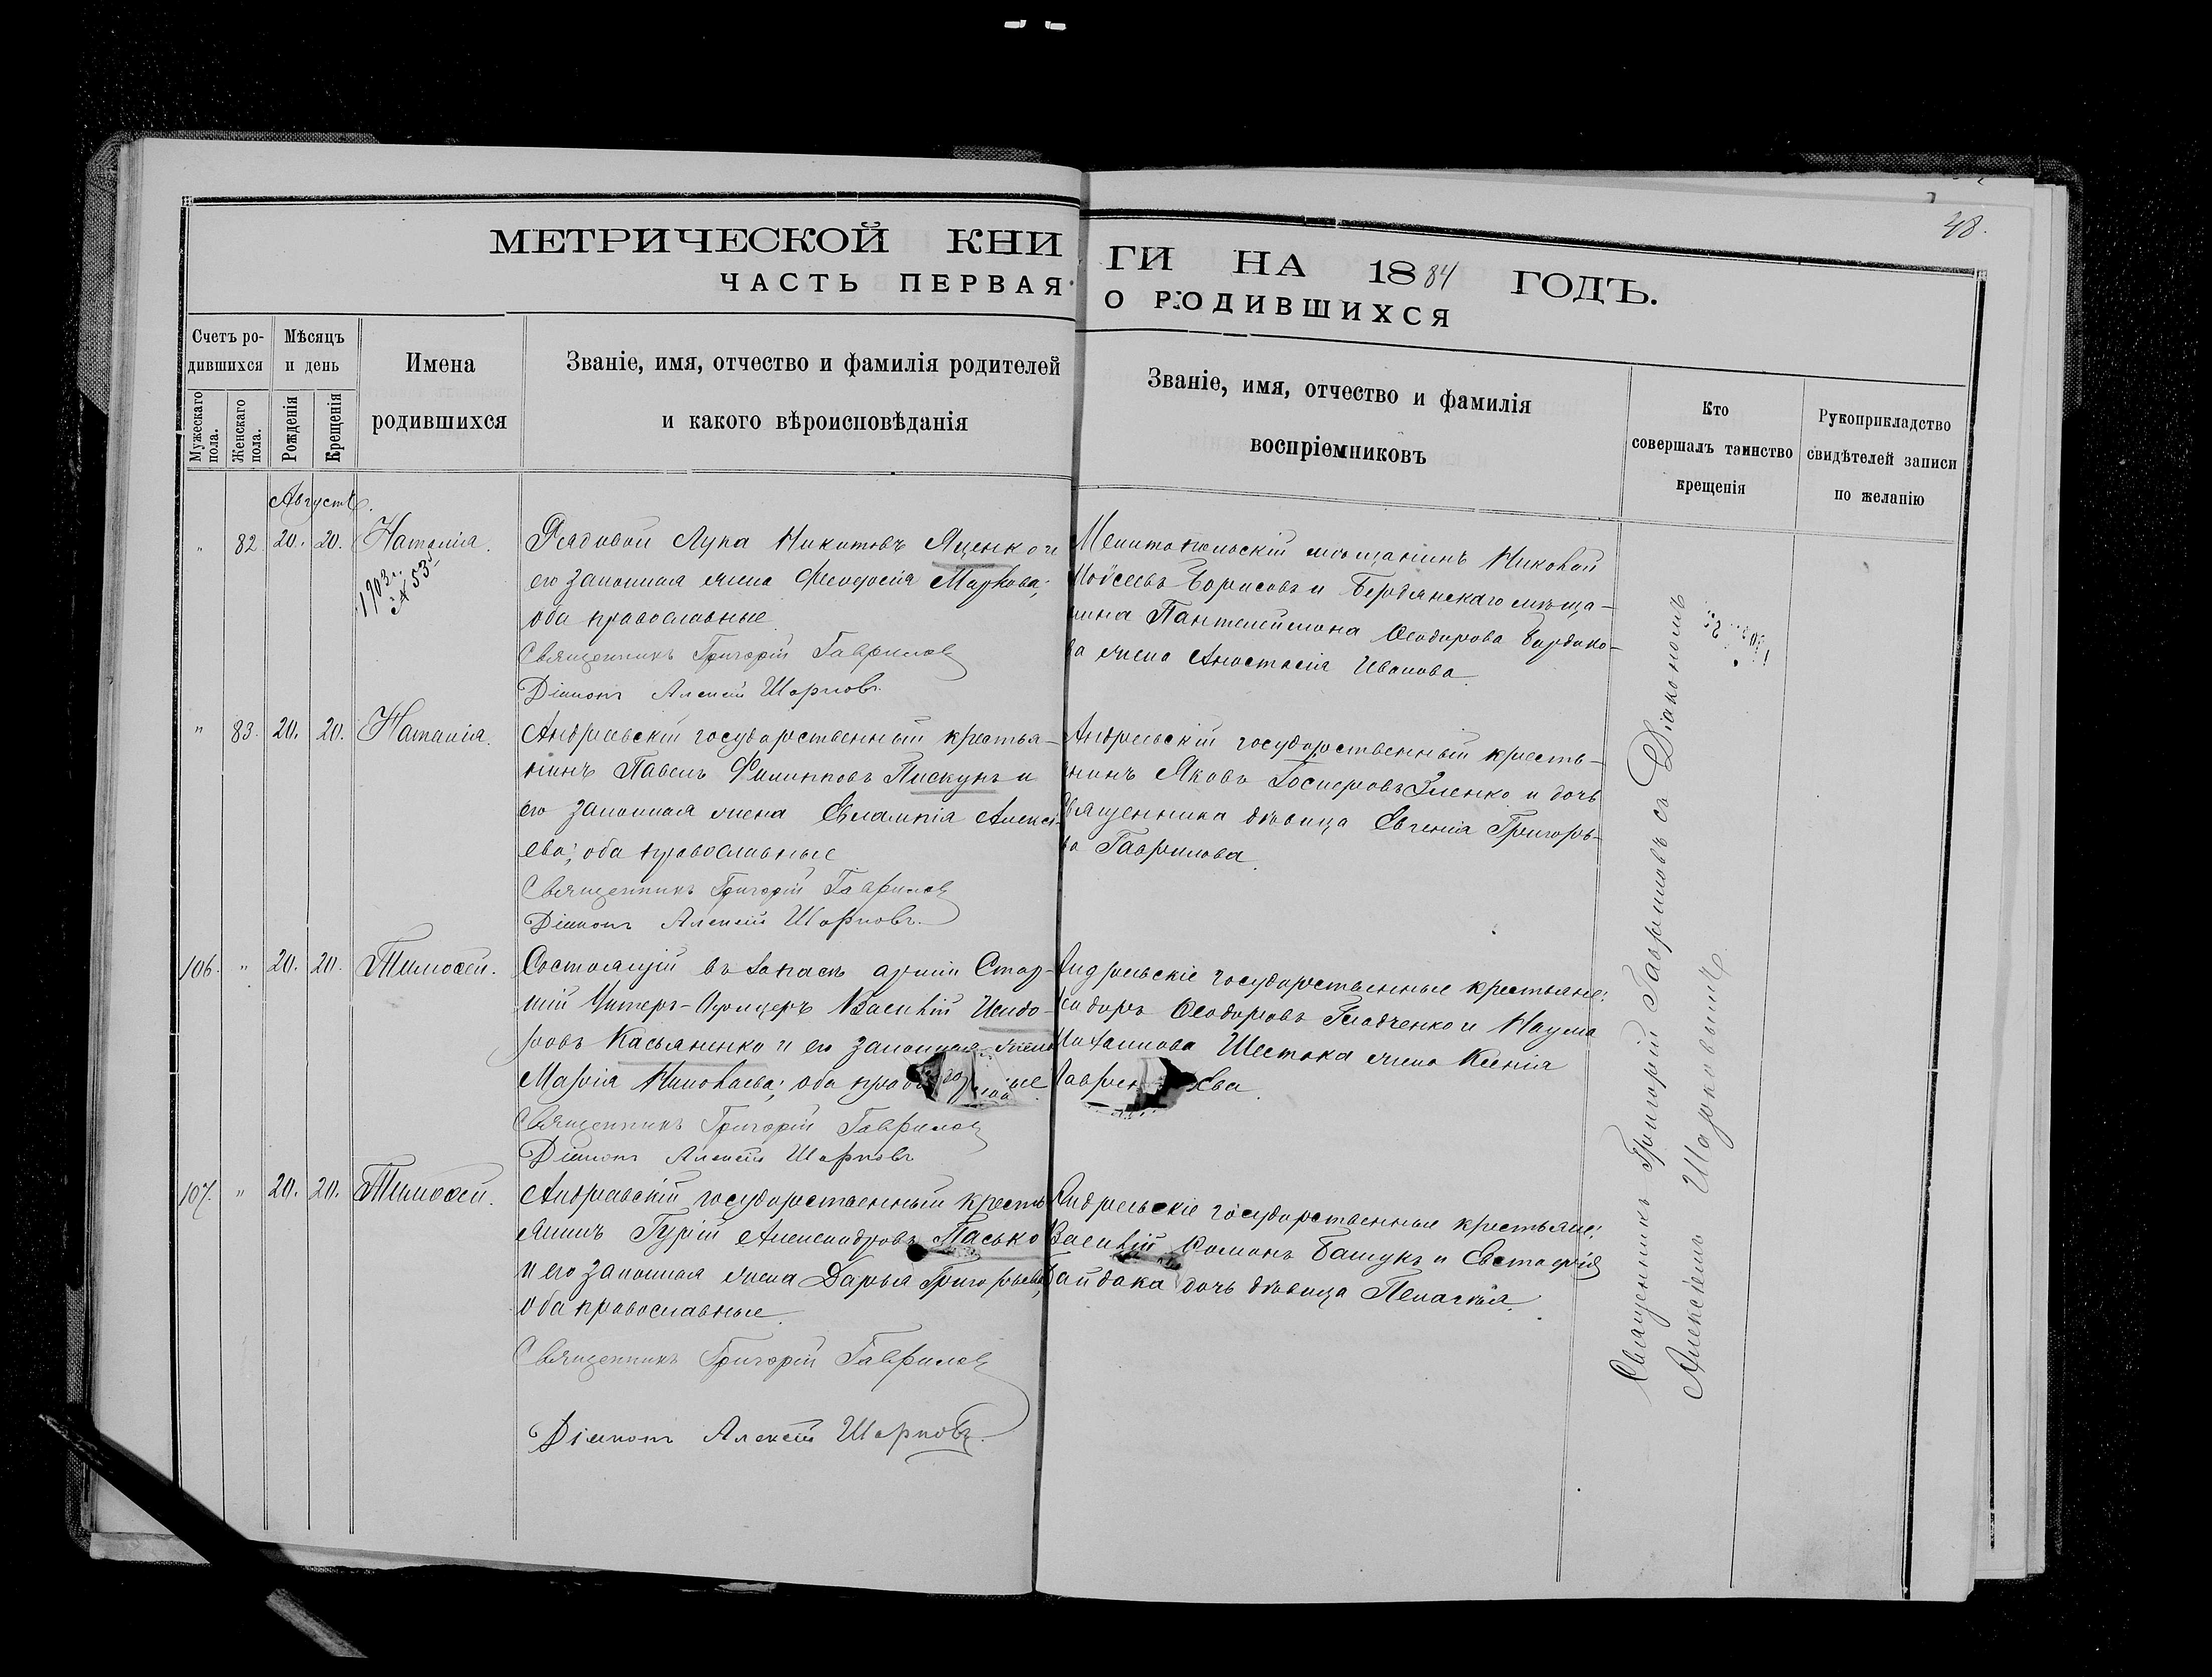 48.
МЕТРИЧЕСКОЙ КНИГИ НА 1884 ГОДЪ.
ЧАСТЬ ПЕРВАЯ О РОДИВШИХСЯ
Счетъ родившихся
Мужескаго пола.
Женскаго пола.
Мѣсяцъ и день
Рожденія
Крещенія
Имена
родившихся
Званіе, имя, отчество и фамилія родителей
и какого вѣроисповѣданія
Званіе, имя, отчество и фамилія
воспріемниковъ
Кто
совершалъ таинство
крещенія
Рукоприкладство
свидѣтелей записи
по желанію
Августъ.
" 82. 20. 20. Наталія.
1903 г.
№ 53
Рядовой Лука Никитовъ Яценко и
его законная жена Феодосія Маркова;
оба православные
Священникъ Григорій Гавриловъ
Діаконъ Алексій Шарковъ.
Мелитопольскій мѣщанинъ Николай
Моѵсеевъ Борисовъ и Бердянскаго мѣща-
нина Пантелеймона Ѳеодорова
жена Анастасія Иванова.
" 83. 20. 20. Наталія.
Андреевскій государственный крестья-
нинъ Павелъ Филипповъ Пискунъ и
его законная жена Евлампія Алексѣ-
ева; оба православные
Священникъ Григорій Гавриловъ
Діаконъ Алексій Шарковъ.
Андреевскій государственный кресть-
янинъ Яковъ Зленко и дочь
Священника дѣвица Евгенія Григорь-
ва Гаврилова.
106. " 20. 20. Тимофей.
Состоящій въ запасѣ арміи Стар-
шій Унтеръ-Офицеръ Василій Исидо-
ровъ Касьяненко и его законная жена
Марія Николаева; оба православные.
Священникъ Григорій Гавриловъ
Діаконъ Алексій Шарковъ
Андреевскіе государственные крестьяне:
Ѳеодоровъ Гладченко и Наума
Михаилова Шестака жена Ксенія
107. " 20. 20. Тимофей.
Андреевскій государственный кресть-
янинъ Гурій Александровъ Пасько
и его законная жена Дарья Григорьева;
оба православные.
Священникъ Григорій Гавриловъ
Діаконъ Алексій Шарковъ.
Андреевскіе государственные крестьяне:
Василій Романъ Башукъ и Евстафія
Гайдака дочь дѣвица Пелагія.
Священникъ Григорій Гавриловъ съ Діакономъ
Алексіемъ Шарковымъ